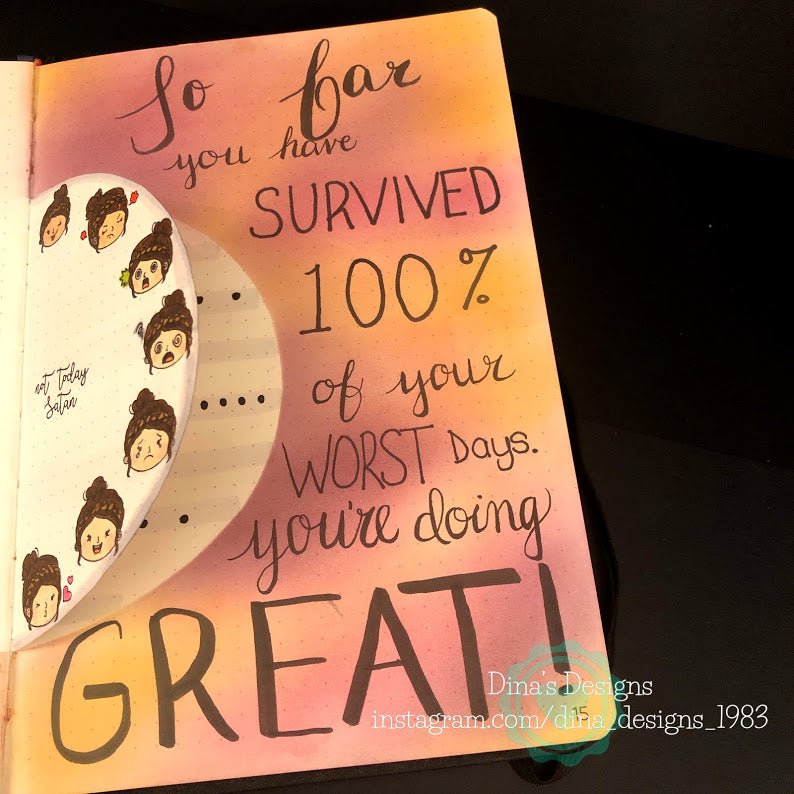 So far
you have
SURVIVED
100%
of your
WORST Days.
you're doing
GREAT!
not today
satan
Dina's Designs
instagram.com/dina_designs_1983
15